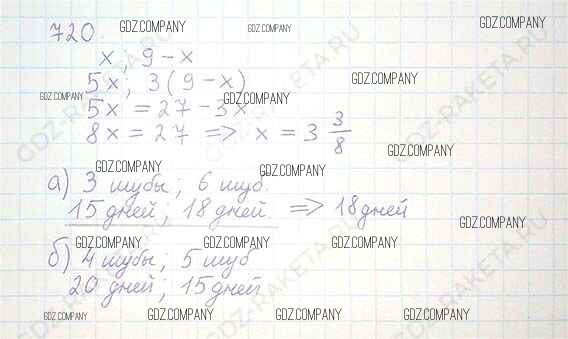 720. GDZ.COMPANY GDZ.COMPANY GDZ.COMPANY
x ; 9 - x
5x ; 3 (9 - x) GDZ.COMPANY
GDZ.COMPANY 5x = 27 - 3x GDZ.COMPANY
8x = 27 => x = 3 3/8 GDZ.COMPANY
GDZ.COMPANY GDZ.COMPANY
а) 3 шубы ; 6 шуб.
15 дней ; 18 дней => 18 дней GDZ.COMPANY
GDZ.COMPANY GDZ.COMPANY GDZ.COMPANY
б) 4 шубы ; 5 шуб
20 дней ; 15 дней
GDZ.COMPANY GDZ.COMPANY GDZ.COMPANY GDZ.COMPANY
GDZ-RAKETA.RU
GDZ-RAKETA.RU
GDZ-RAKETA.RU
GDZ-RAKETA.RU